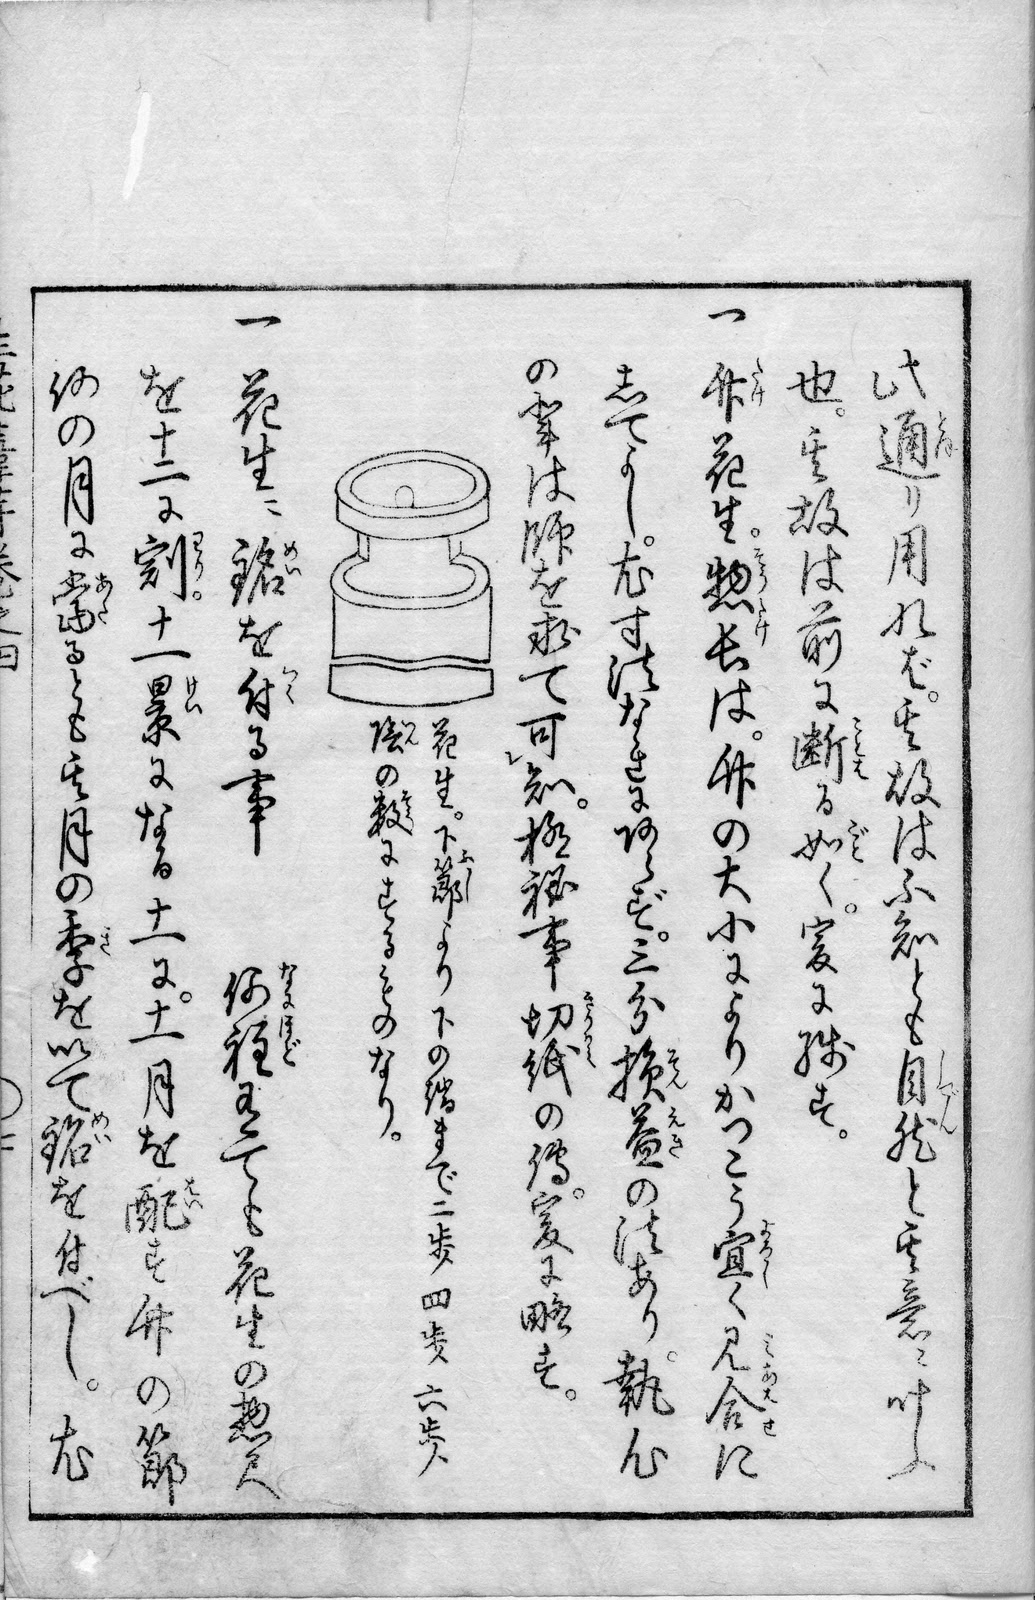 此通り用れバ。其故は不知とも自然と其意ニ叶ふ
也。其故は前に断る如く。爰に残す。
一 竹花生。惣長は。竹の大小によりかつこう宜く見合に
志てよし。尤寸法なきにあらず。三分損益の法あり。執心
の輩は師を求て可知。極秘事切紙の傳。爰に略す。
花生。下節より下の端まで二歩 四歩 六歩
陰の数にするものなり。
一 花生ニ銘を付る事 何程有ても花生の惣尺
を十二に割。十一景になる十一に。十一月を配す竹の節
何の月に當るとも其月の季を以て銘を付べし。尤